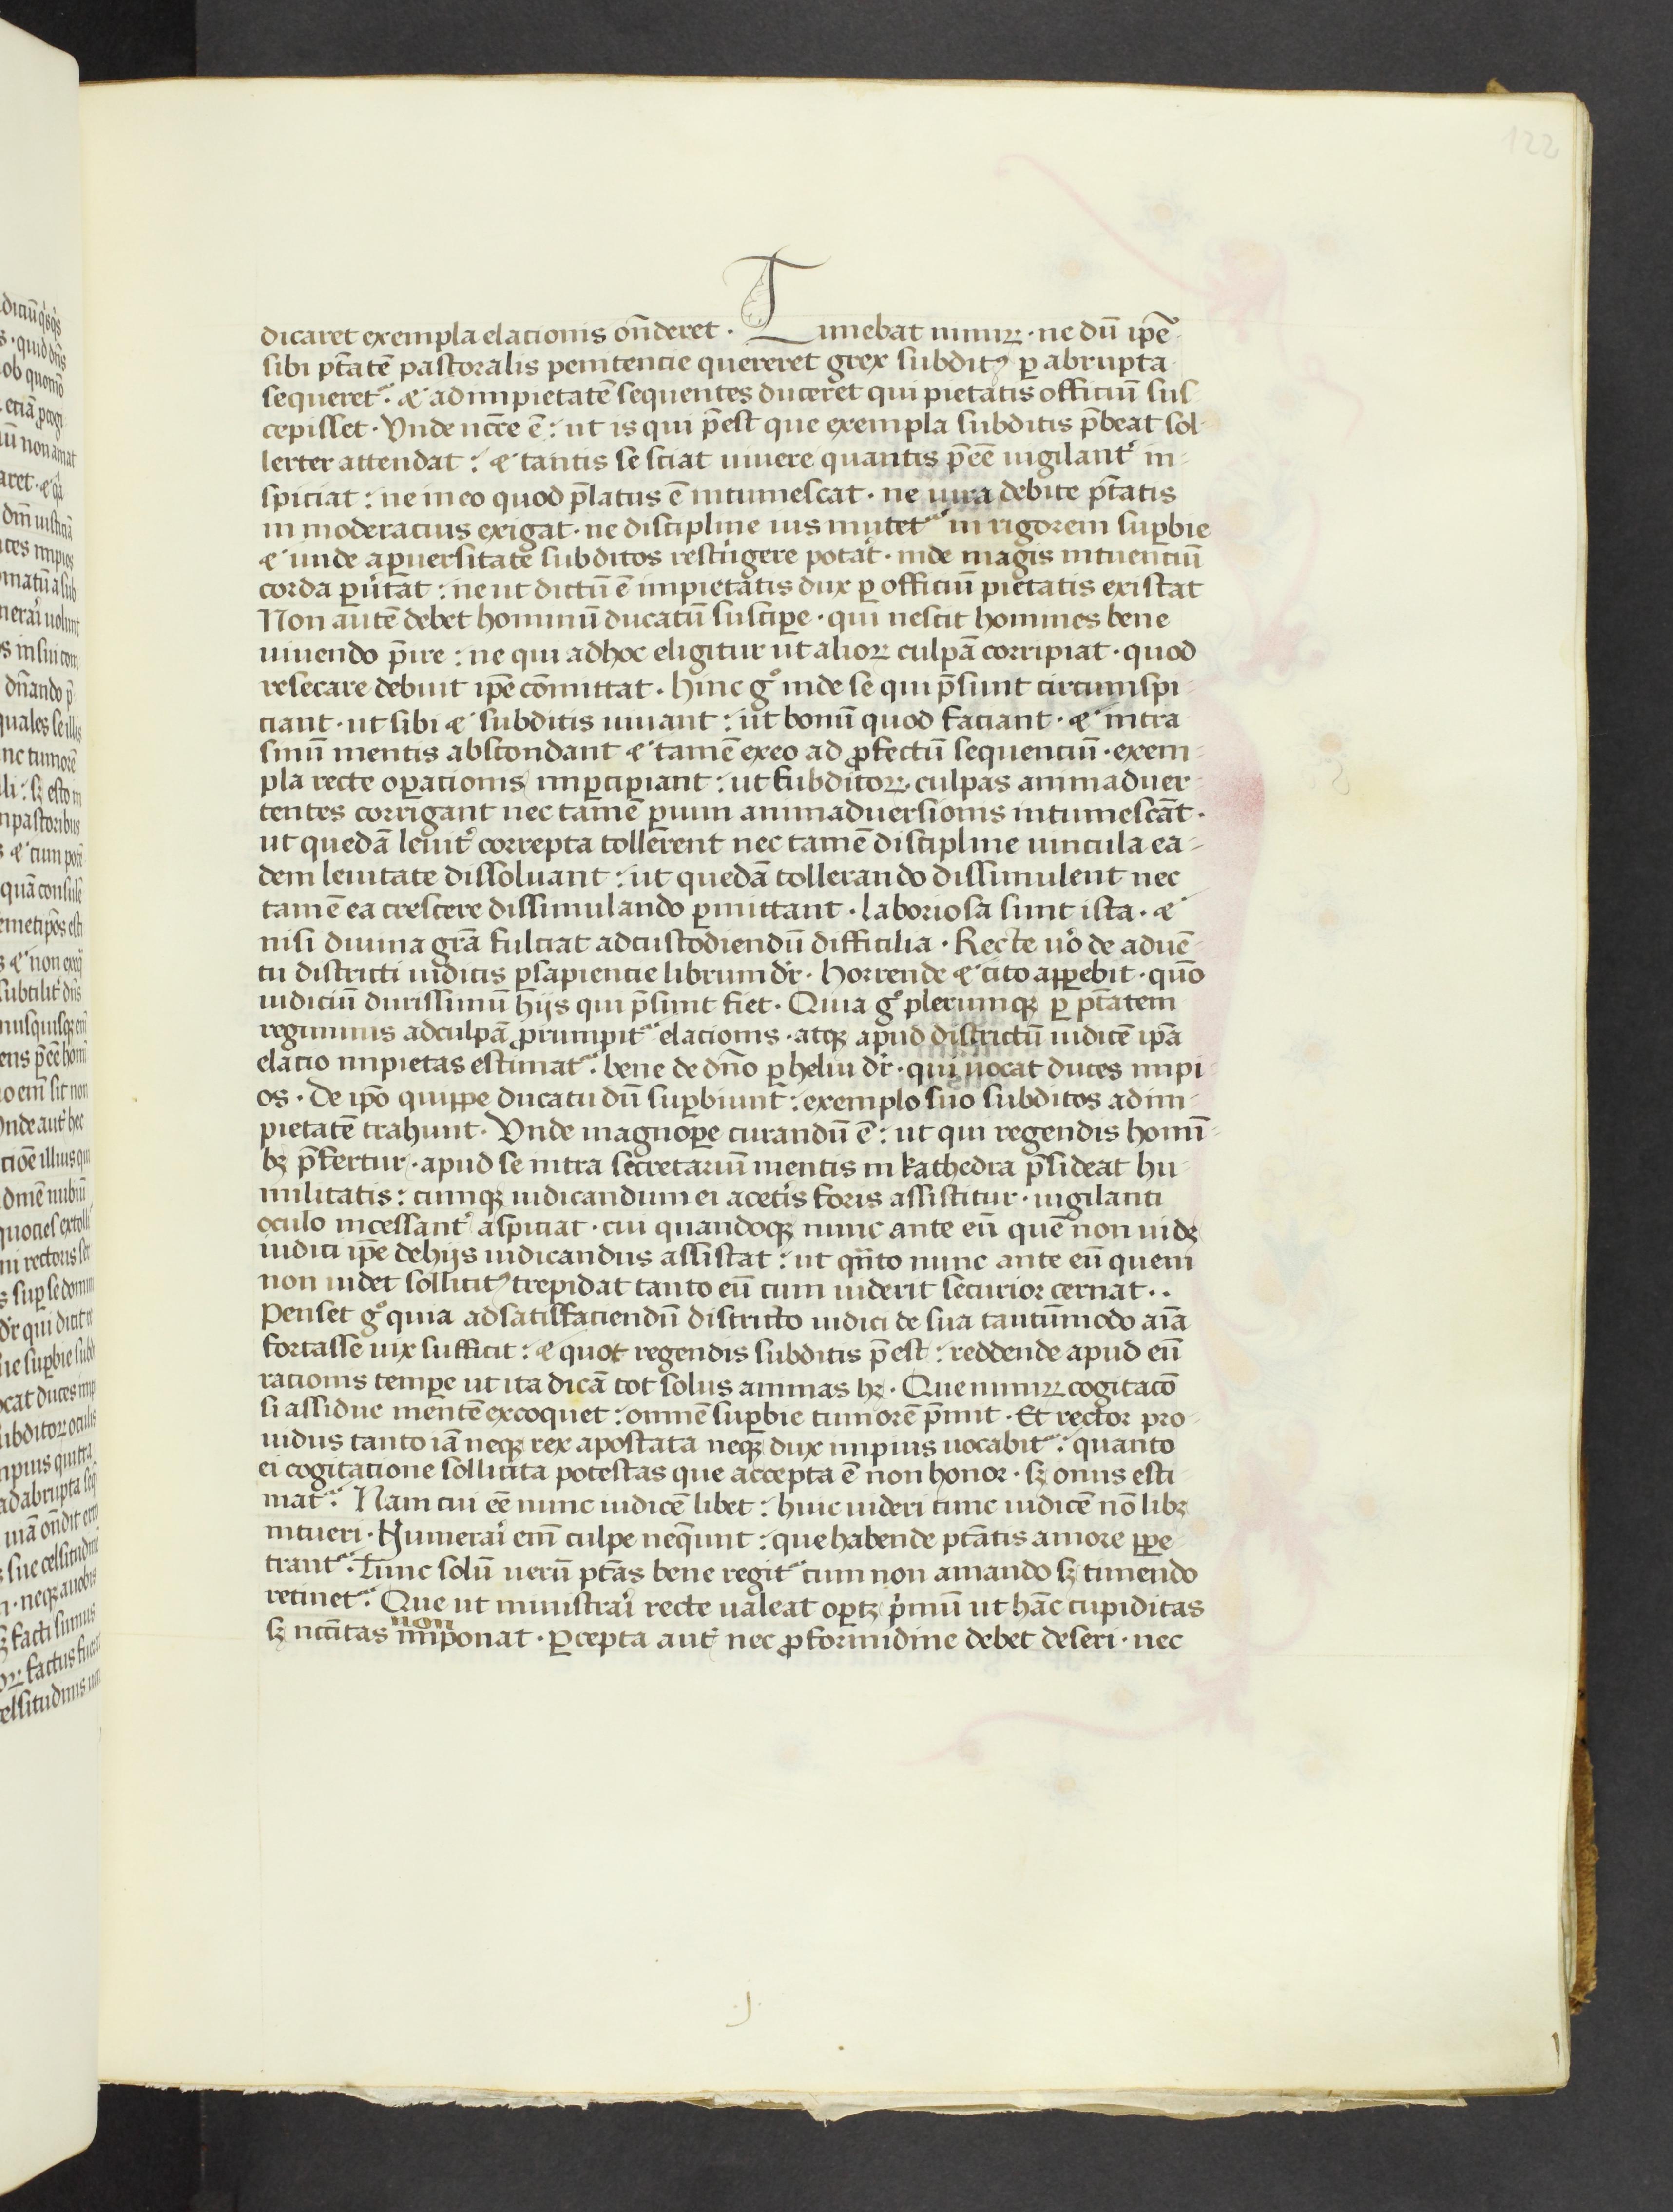 122
dicaret exempla elacionis oñderet · Timebat nimiꝝ · ne dū ip̄e
sibi ptātē pastoralis penitencie quereret grex subditꝰ ꝑ abrupta
sequeretᷣ · ⁊ ad impietatē sequentes duceret qui pietatis officiū sus
cepisset · Vnde nccē ē : ut is qui p̄est que exempla subditis p̄beat sol
lerter attendat : ⁊ tantis se sciat uiuere quantis p̄eē uigilant᷑ in-
spiciat : ne in eo quod p̄latus ē intumescat · ne iura debite ptātis
in moderacius exigat · ne discipline ius mutetᷣ in rigorem suꝑbie
⁊ unde aꝑuersitate subditos restͥngere potāt · inde magis intuenciū
corda ꝑuͥtāt : ne ut dictū ē impietatis dux ꝑ officiū pietatis existat
Non autē debet hominū ducatū susciꝑe · qui nescit homines bene
uiuendo p̄ire : ne qui adhoc eligitur ut alioꝝ culpā corripiat · quod
resecare debuit ip̄e cōmittat · hinc gͦ inde se qui p̄sunt circumspi
ciant · ut sibi ⁊ subditis uiuant : ut bonū quod faciant · ⁊ intra
sinū mentis abscondant ⁊ tamē exeo ad ꝓfectū sequenciū · exem-
pla recte oꝑacionis imꝑcipiant : ut subditoꝝ culpas animaduer-
tentes corrigant nec tamē ꝑuim animaduersionis intumescāt ·
ut quedā leuit᷑ correpta tollerent nec tamē discipline uincula ea-
dem leuitate dissoluant : ut quedā tollerando dissimulent nec
tamē ea crescere dissimulando ꝑmittant · laboriosa sunt ista · ⁊
nisi diuina grā fulciat adcustodiendū difficilia · Recte uͦo de aduē-
tu districti iudicis ꝑsapiencie librum dr̄ · horrende ⁊ cito apꝑebit · quō
iudiciū durissimū hijs qui p̄sunt fiet · Quia gͦ plerumqꝫ ꝑ ptātem
regiminis adculpā ꝓrumpitᷣ elacionis · atqꝫ apud districtū iudicē ipā
elacio impietas estimatᷣ · bene de dn̄o ꝑ heliu dr̄ · qui uocat duces impi
os · De ip̄o quippe ducatu dū suꝑbiunt : exemplo suo subditos ad im-
pietatē trahunt · Vnde magnoꝑe curandū ē : ut qui regendis homī-
bꝫ p̄fertur · apud se intra secretarium mentis in kathedra p̄sideat hu-
militatis : cumqꝫ iudicandum ei acetͥs foris assistitur · uigilanti
oculo incessant᷑ aspiciat · cui quandoqꝫ nunc ante eū quē non uidꝫ
iudici ip̄e dehijs iudicandus assistat : ut qn̄to nunc ante eū quem
non uidet sollicitꝰ trepidat tanto eū cum uiderit securior cernat · ·
Penset gͦ quia adsatisfaciendū districto iudici de sua tantūmodo aīa
fortasse uix sufficit : ⁊ quot regendis subditis p̄est : reddende apud eū
racionis temꝑe ut ita dicā tot solus animas hꝫ · Que nimiꝝ cogitacō
si assidue mentē excoquet : omnē suꝑbie tumorē p̄mit · Et rector pro-
uidus tanto iā neqꝫ rex apostata neqꝫ dux impius uocabitᷣ : quanto
ei cogitacione sollicita potestas que accepta ē non honor · sꝫ onus esti
matᷣ · Nam cui eē nunc iudicē libet : huic uideri tunc iudicē nō libꝫ
intueri · Numerari em̄ culpe neq̄unt : que habende ptātis amore ꝑpe
trantᷣ · Tunc solū uerū ptās bene regitᷣ cum non amando sꝫ timendo
retinetᷣ · Que ut ministrari recte ualeat oꝑtꝫ pͥmū ut hāc cupiditas
non
sꝫ nccītas imponat · ꝑcepta aut᷑ nec ꝓ formidine debet deseri · nec
· J ·